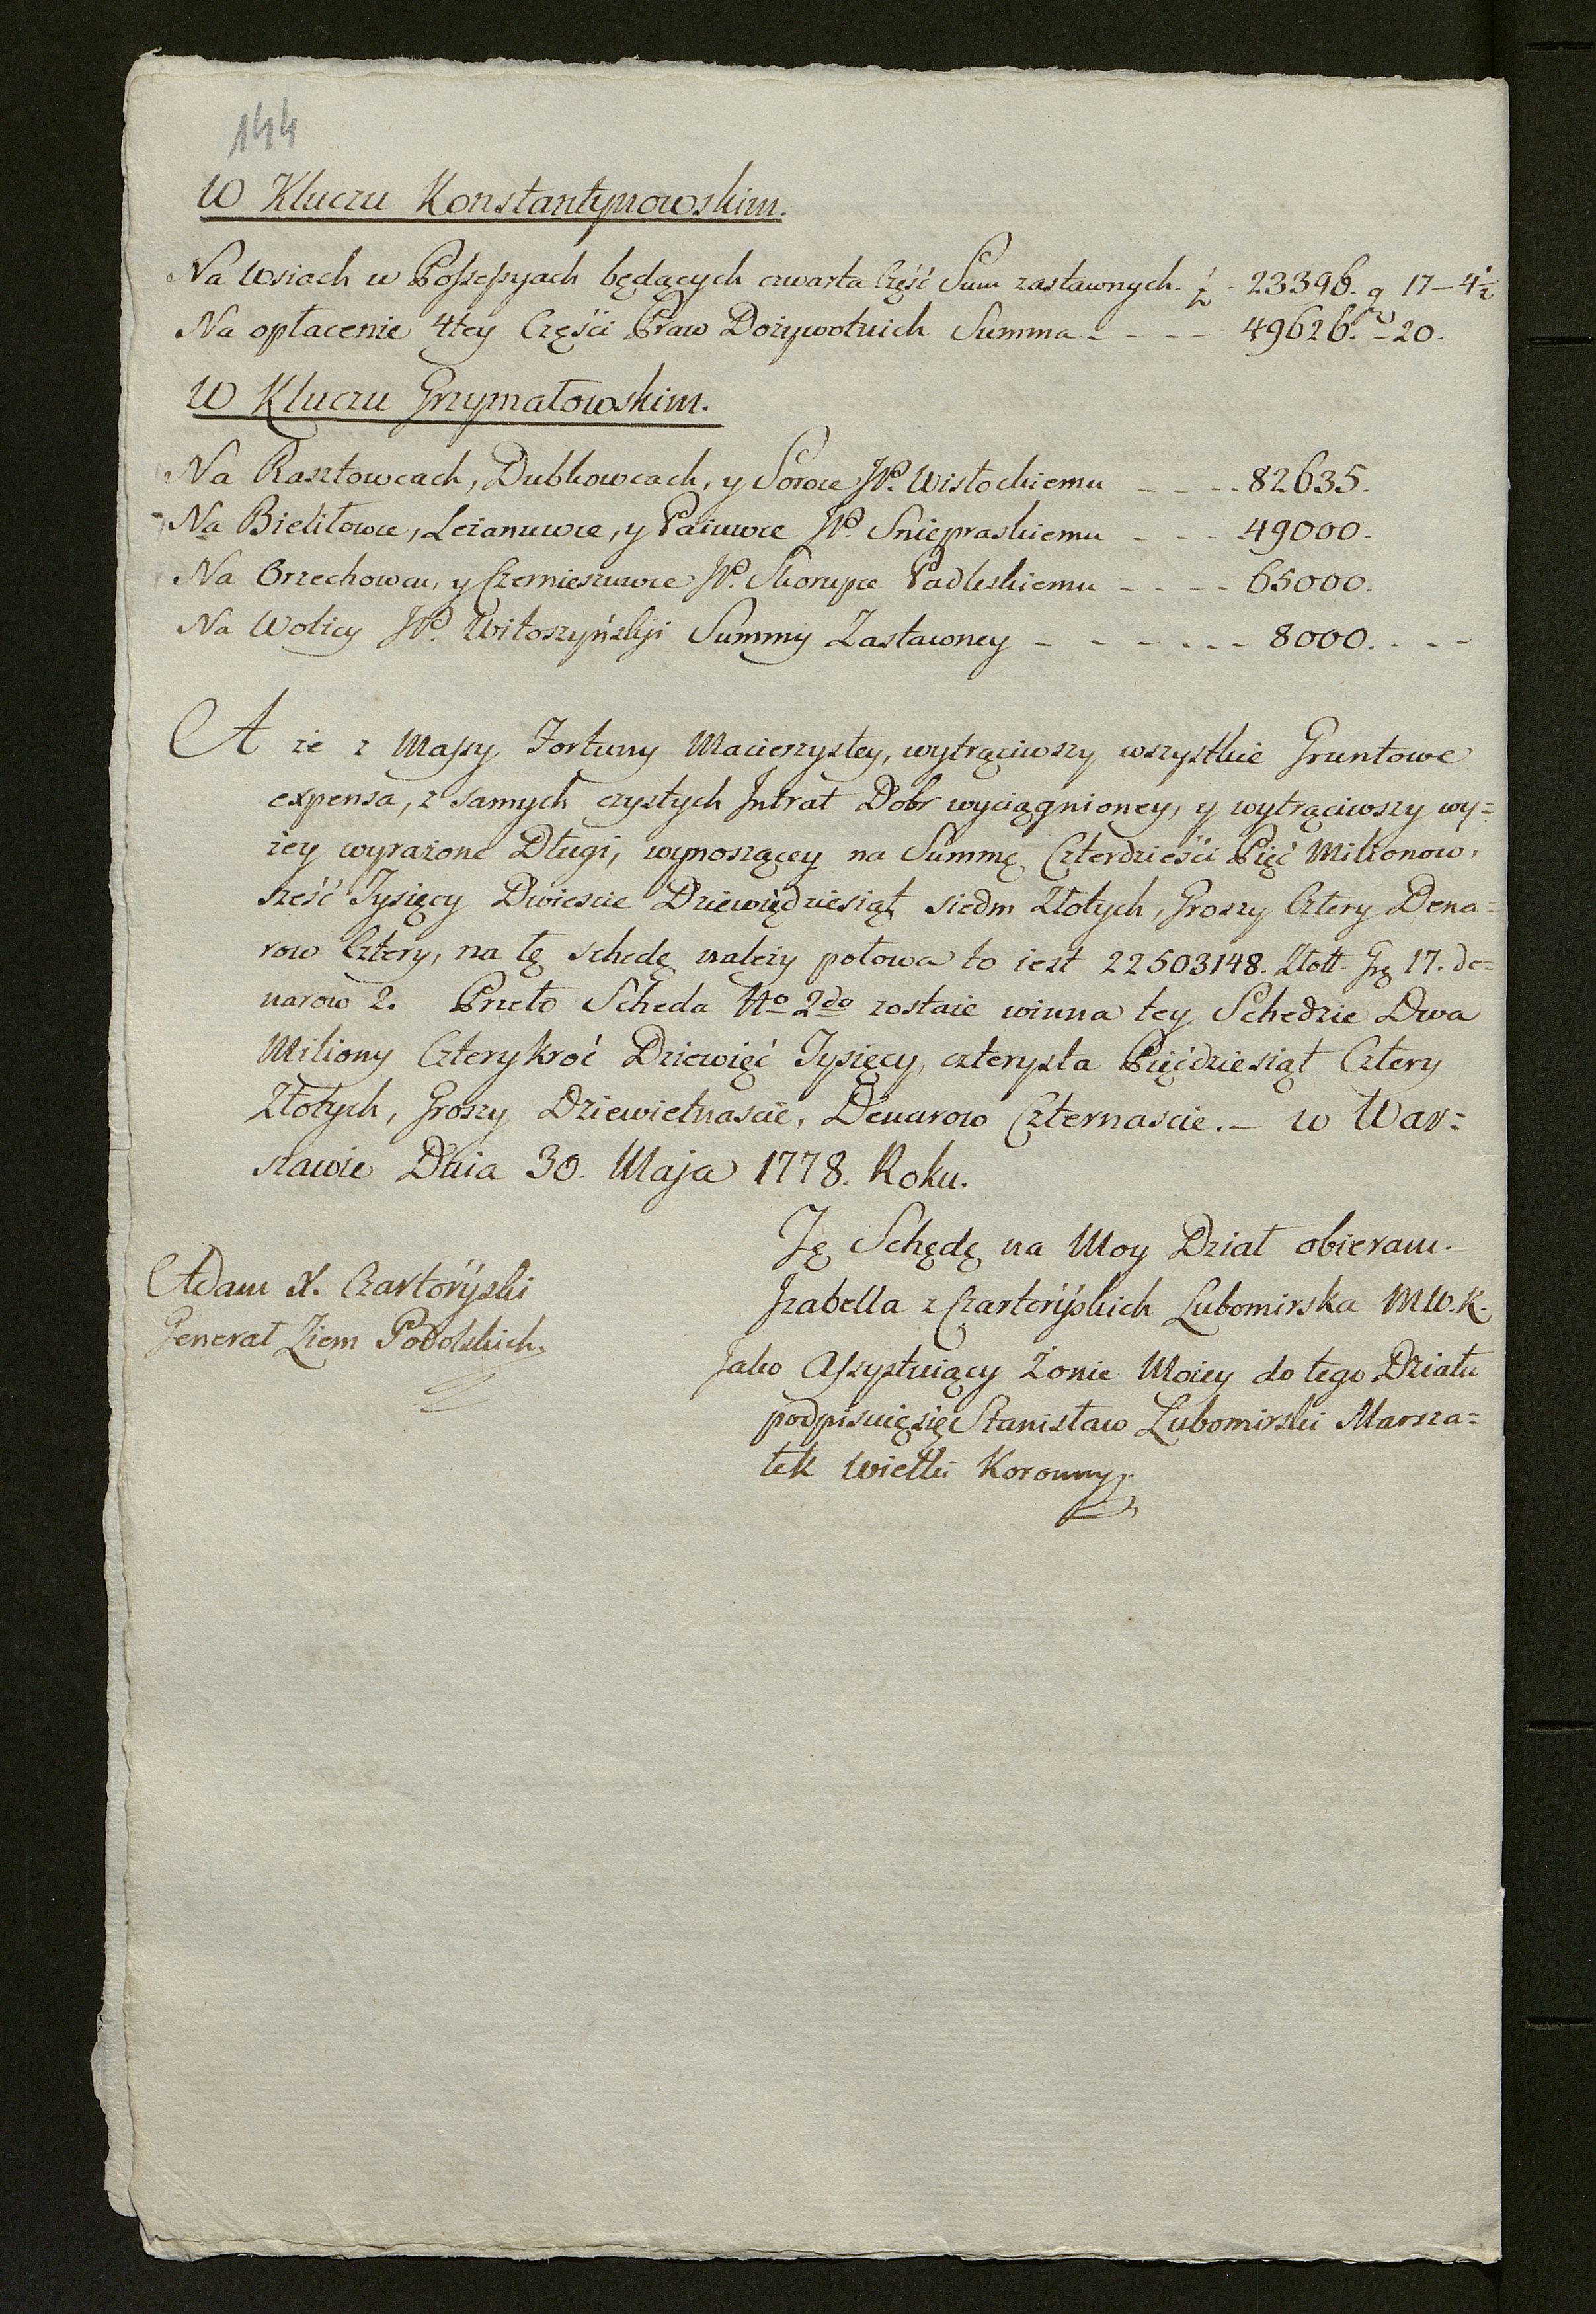 144
W Kluczu Konstantynowskim.
Na Wsiach w Possessyach będących czwarta Część Sum zastawnych. 23396. g 17 – 4½
Na opłacenie 4tey Części Praw Dożywotnich Summa - - - - 49626. - 20.
W Kluczu Grzymałowskim.
Na Rasztowcach, Dubkowcach, y Soroce JP. Wisłockiemu - - - 82635.
Na Bielitowce, Leżanuwce, y Paiuwce JP. Śnieпraskiemu - - - 49000.
Na Orzechowcu, y Czernieszuwce JP. Skorupce Padleskiemu - - - - 65000.
Na Wolicy JP. Witoszyńskji Summy Zastawney - - - - - - 8000. - - -
A że z Massy Fortuny Macierzystey, wytrąciwszy wszystkie Gruntowe
expensa, z samych czystych Intrat Dobr wyciągnioney, y wytrąciwszy wy=
żey wyrażone Długi, wynoszącey na Summę Czterdzieści Pięć Milionow,
sześć Tysięcy Dwieście Dziewięćdziesiąt siedm Złotych, Groszy Cztery Dena=
row Cztery, na tę schedę należy połowa to iest 22503148. Złott. Grę 17. de=
narow 2. Przeto Scheda No 2do zostaie winna tey Schedzie Dwa
Miliony Czterykroć Dziewięć Tysięcy, czterysta Pięćdziesiąt Cztery
Złotych, Groszy Dziewietnascie, Denarow Czternascie. – w War=
szawie Dnia 30. Maja 1778. Roku.
Tę Schędę na Moy Dział obieram.
Izabella z Czartoryskich Lubomirska M.W.K.
Adam X. Czartoryski
Generał Ziem Podolskich.
Jako Assystuiący Żonie Moiey do tego Działu
podpisuię się Stanisław Lubomirski Marsza=
łek Wielki Koronny